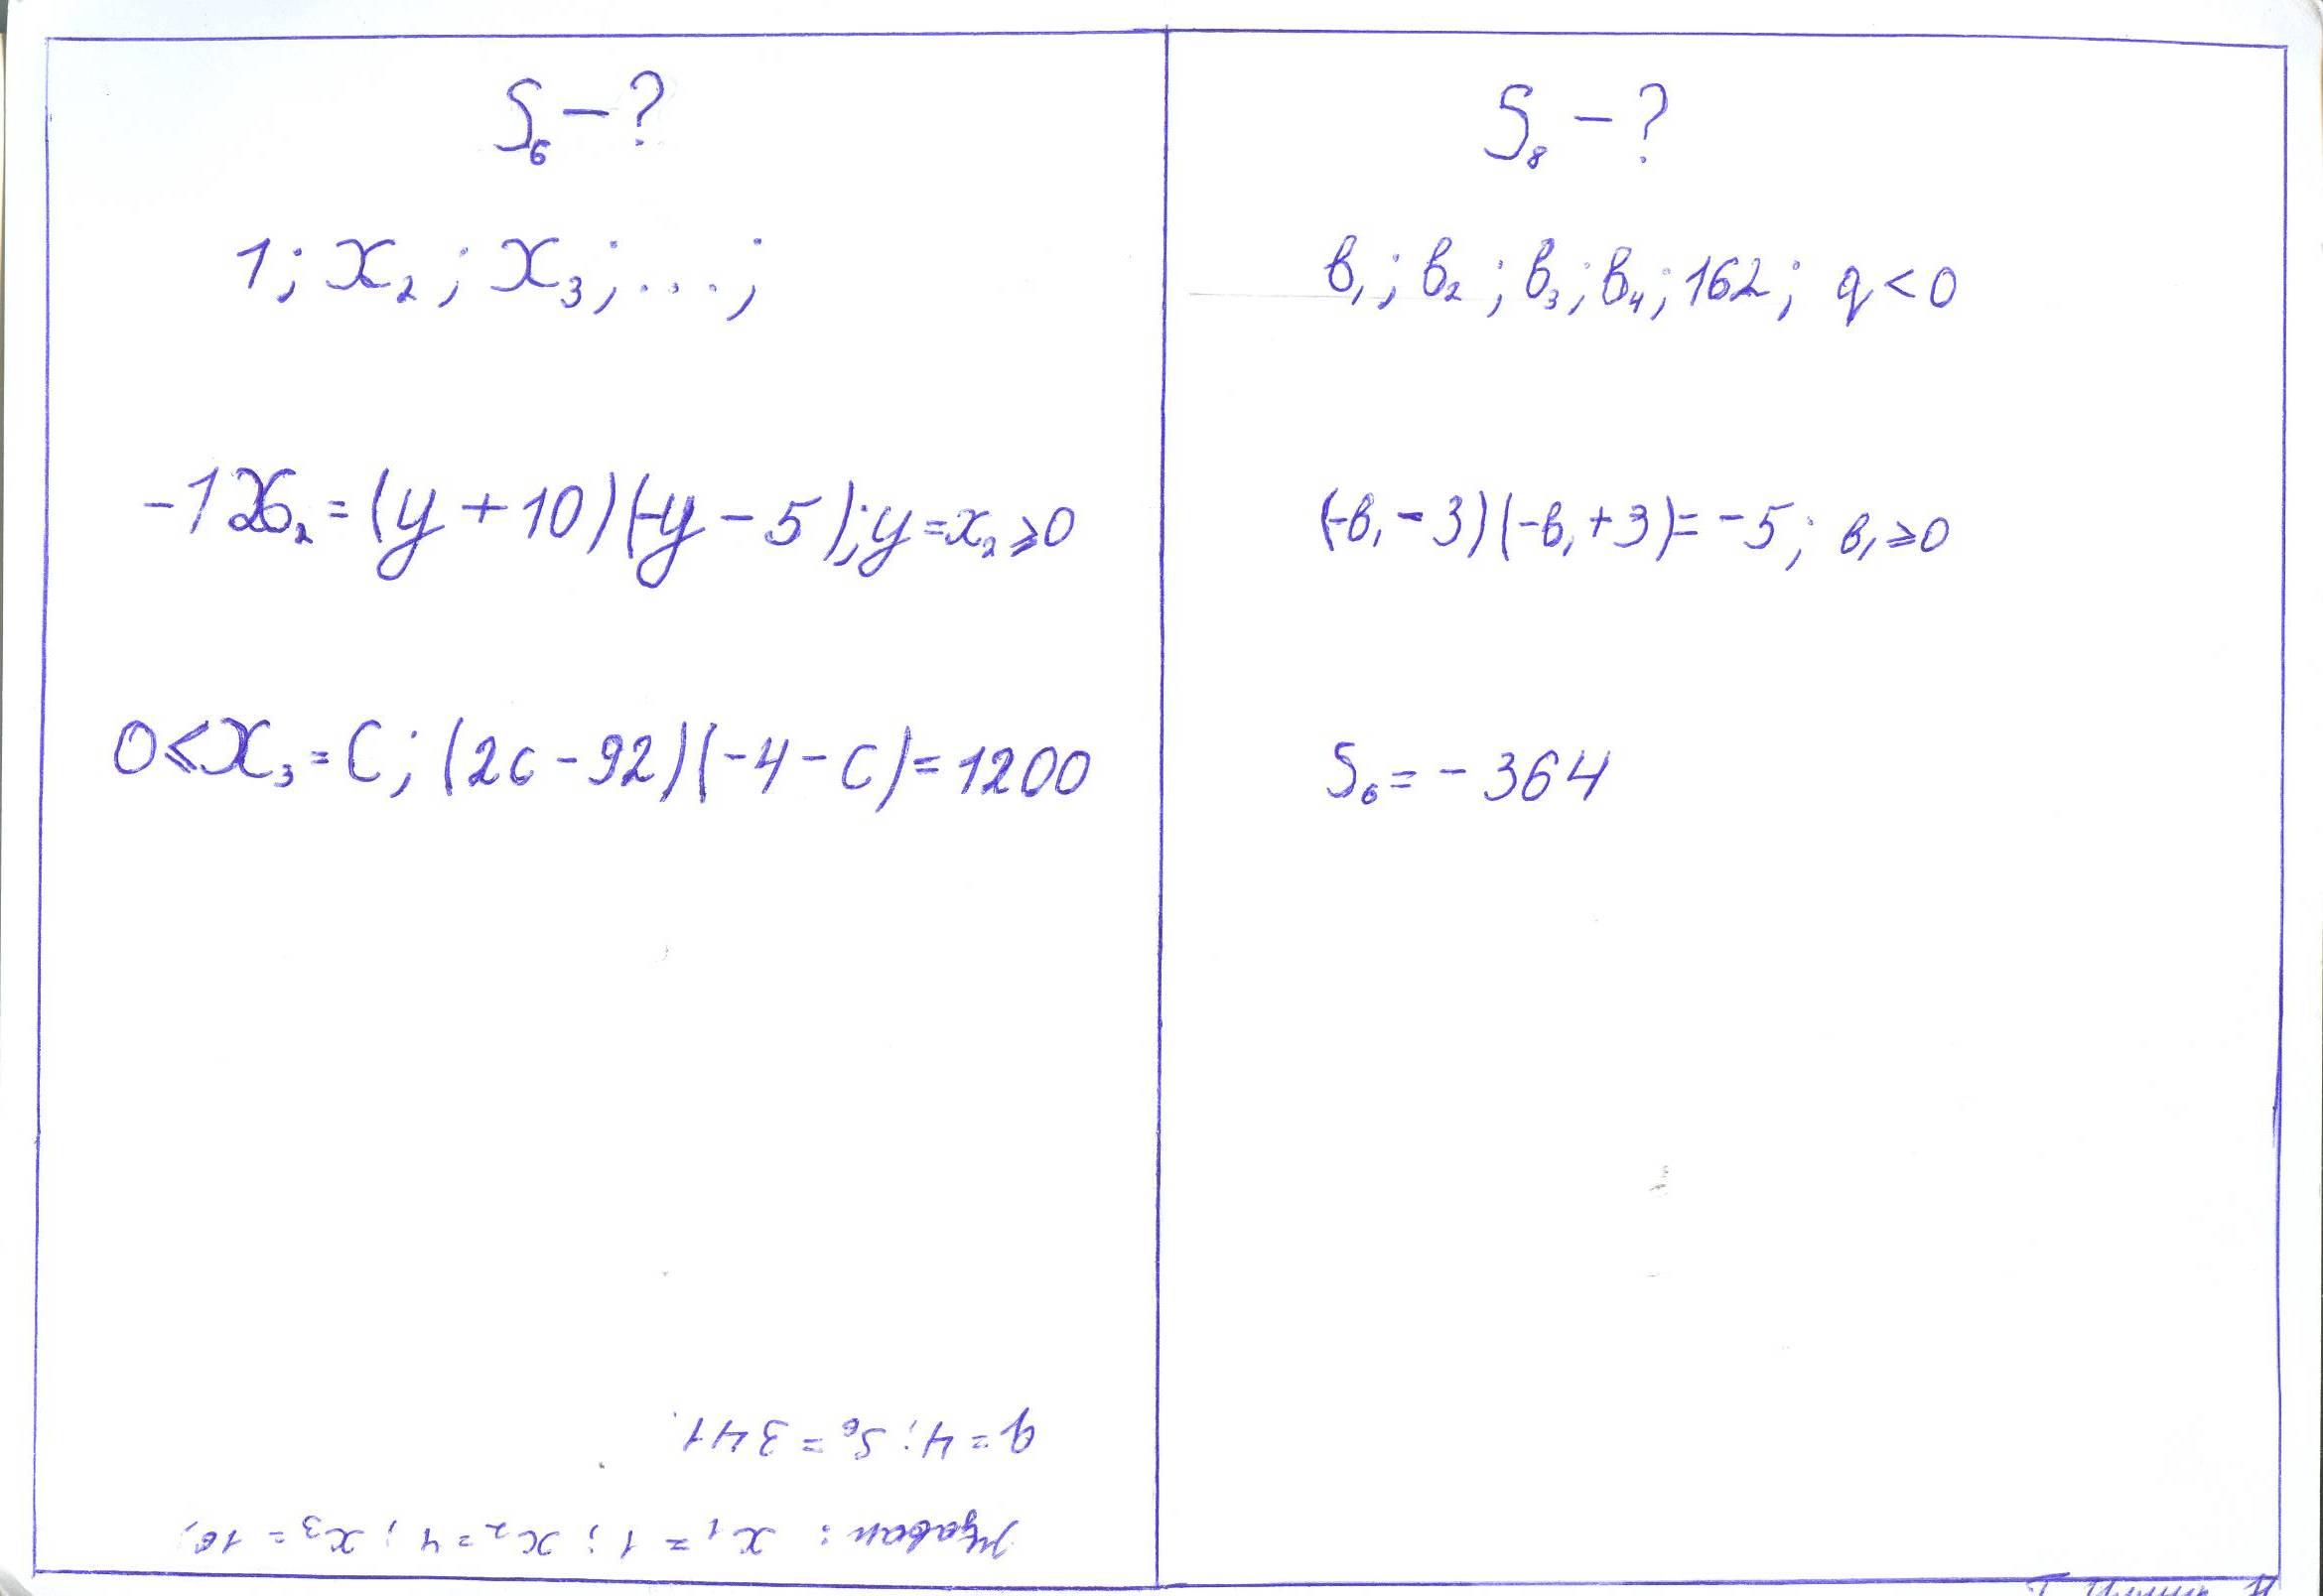 S₆ – ?
1; x₂; x₃; ...;
-126₂ = (y + 10)(-y - 5); y = x₂ ⩾ 0
0 ⩽ x₃ = C; (2c - 92)(-4 - c) = 1200
x₁ = 1; x₂ = 4; x₃ = 16;
q = 4; S₆ = 341.
S₈ – ?
в₁; в₂; в₃; в₄; 162; q < 0
(-в₁ - 3)(-в₁ + 3) = -5; в₁ ⩾ 0
S₆ = - 364